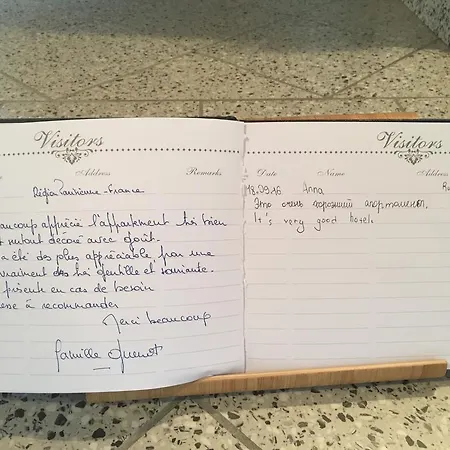 Visitors
Address Remarks
Région Parisienne - France
beaucoup apprécié l'appartement très bien
et surtout décoré avec goût.
a été des plus appréciable, par une
vraiment très gentille et souriante.
présente en cas de besoin
à recommander
Merci beaucoup
famille
Visitors
Date Name Address
18.09.16 Anna Ru
Это очень хороший апартамент.
It's very good hotel.